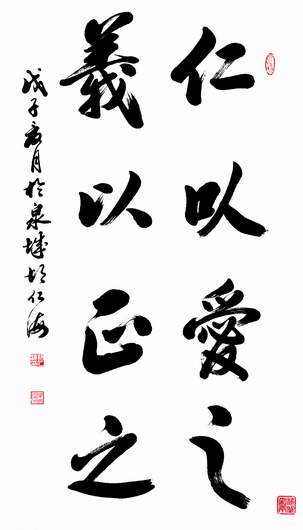 仁以愛之
義以正之
戊子夏月於泉城仁海